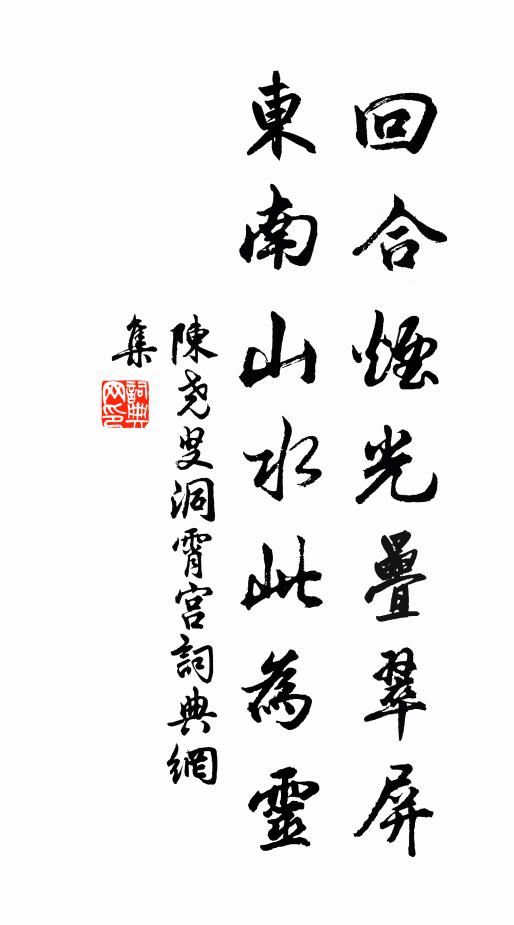 回合煙光疊翠屏
東南山水此為靈
陳堯叟洞霄宮詞典網
集
詞典網印